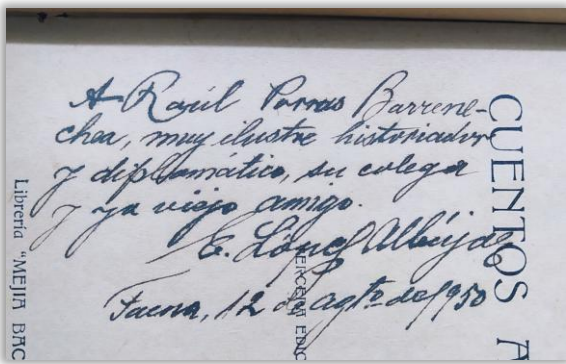 A Raúl Porras Barrene-
chea, muy ilustre historiador
y diplomático, su colega
y ya viejo amigo.
E. López Albújar
Tacna, 12 de agto. de 1950
CUENTOS A
TERCERA EDIC
Librería "MEJIA BAC